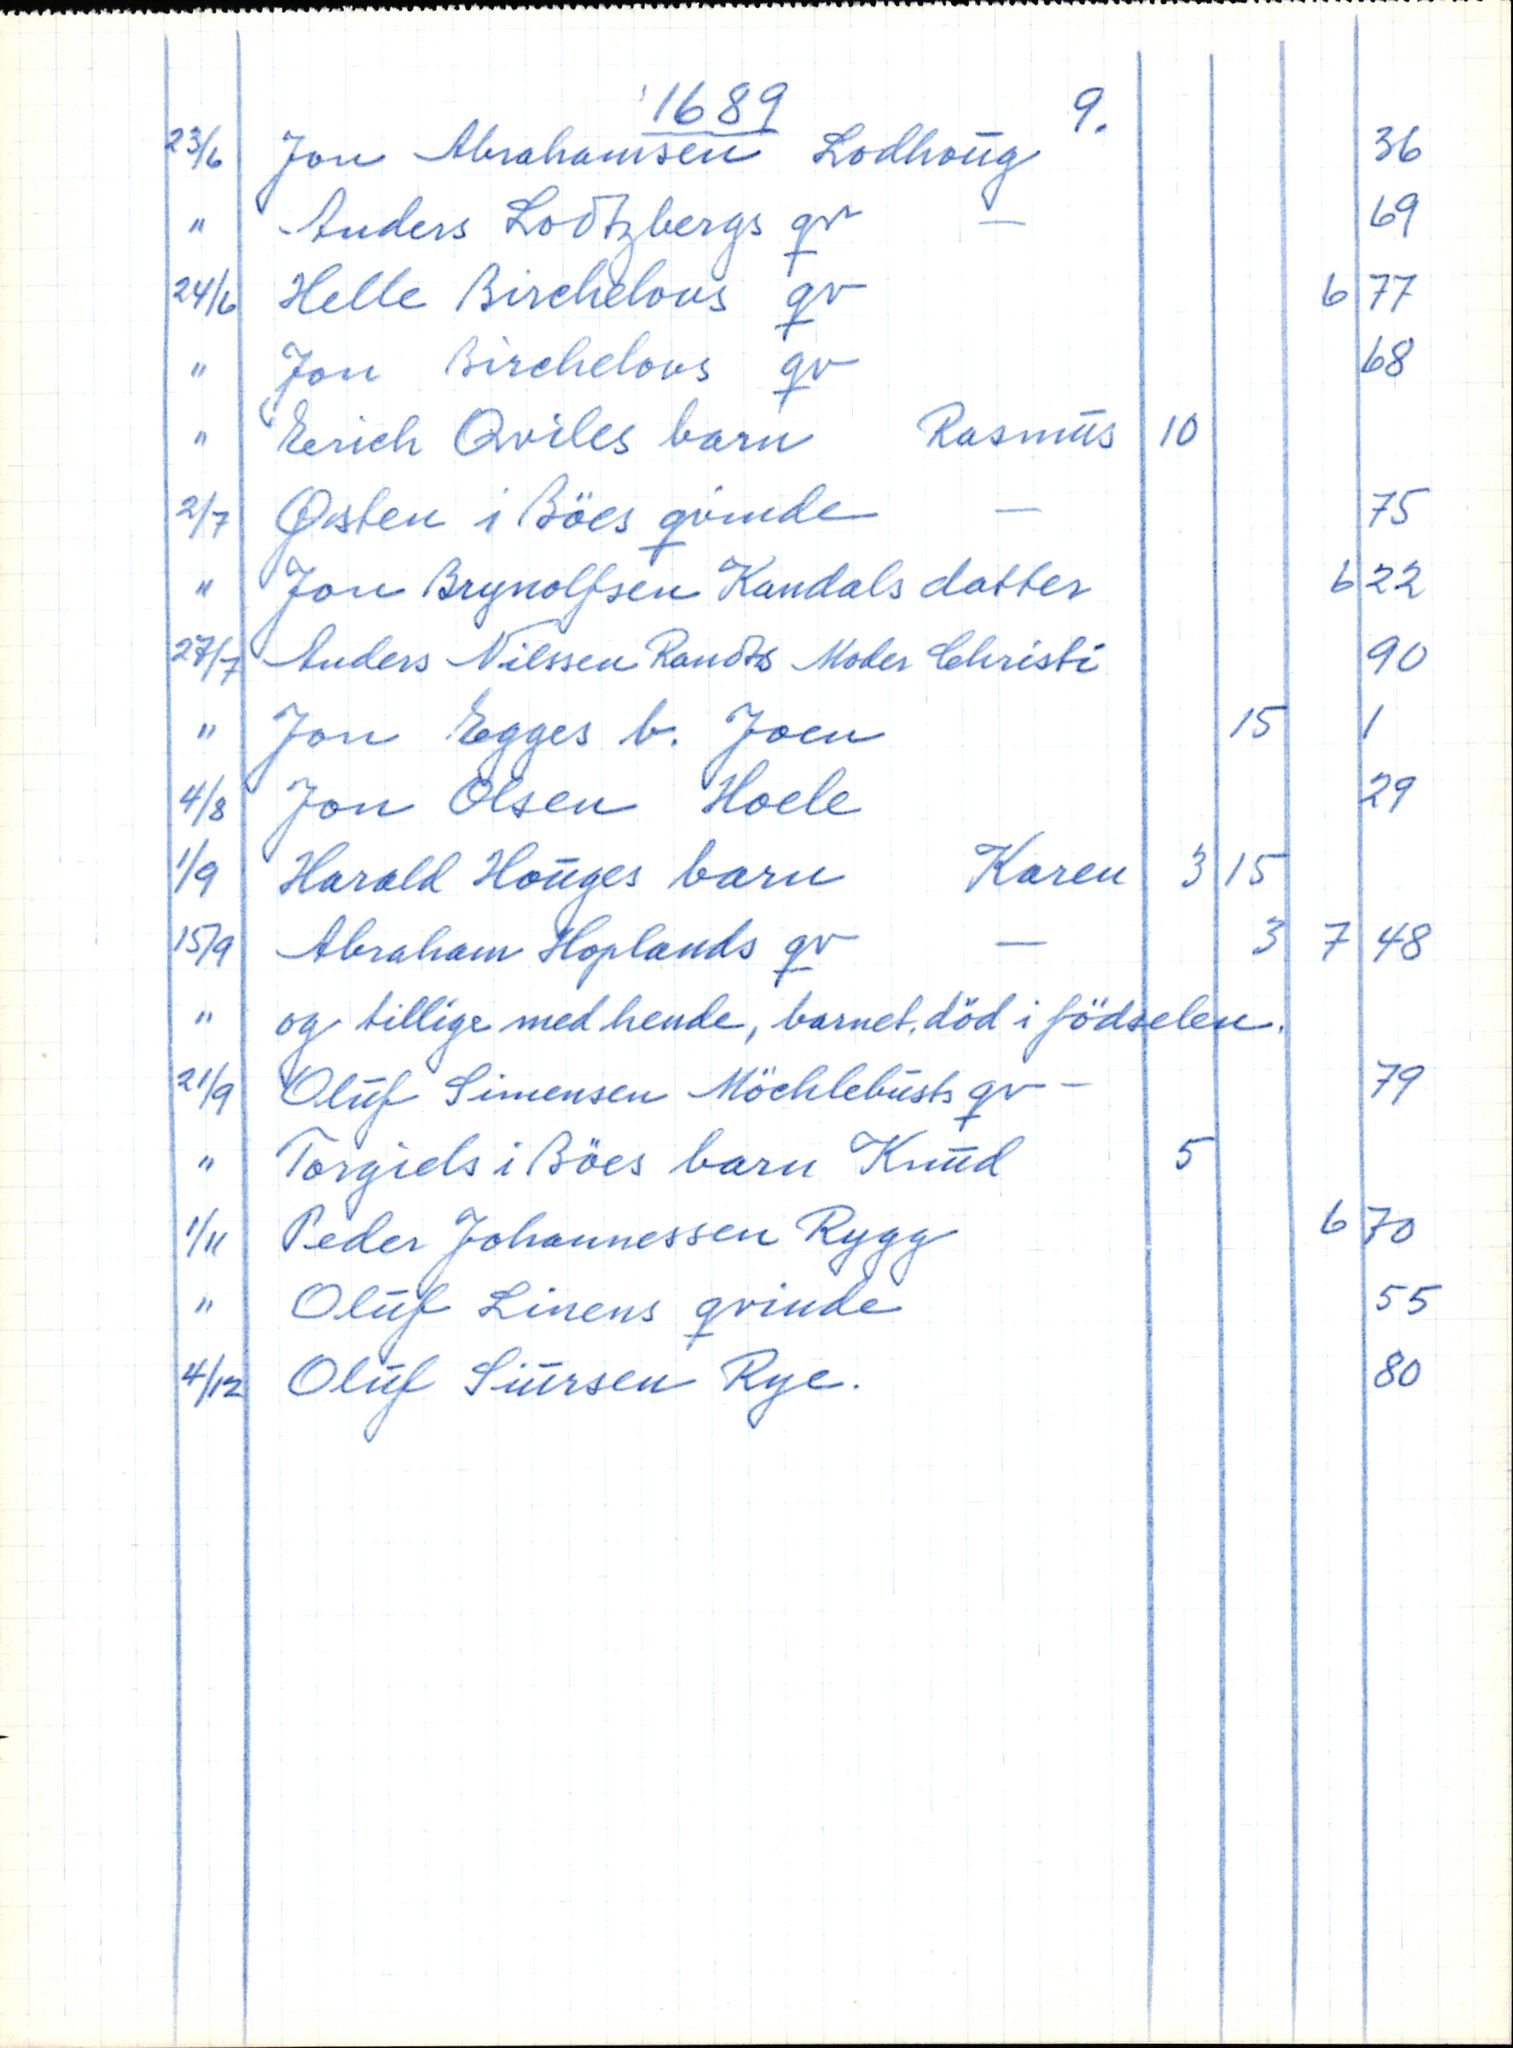 1689 9.
23/6 Jon Abrahamsen Lodhoug 36
" Anders Lodtzbergs qv — 69
24/6 Helle Birchelous qv 6 77
" Jon Birchelous qv 68
" Erich Qviles barn Rasmus 10
2/7 Østen i Böes qvinde — 75
" Jon Brynolfsen Kandals datter 6 22
27/7 Anders Nilssen Randts Moder Christi 90
" Jon Egges b. Joen 15 1
4/8 Jon Olsen Hoele 29
1/9 Harald Houges barn Karen 3 15
15/9 Abraham Hoplands qv — 3 7 48
" og tillige med hende, barnet, död i födselen.
21/9 Oluf Simensen Möchlebusts qv — 79
" Torgiels i Böes barn Knud 5
1/11 Peder Johannessen Rygg 6 70
" Oluf Linens qvinde 55
4/12 Oluf Siursen Rye. 80